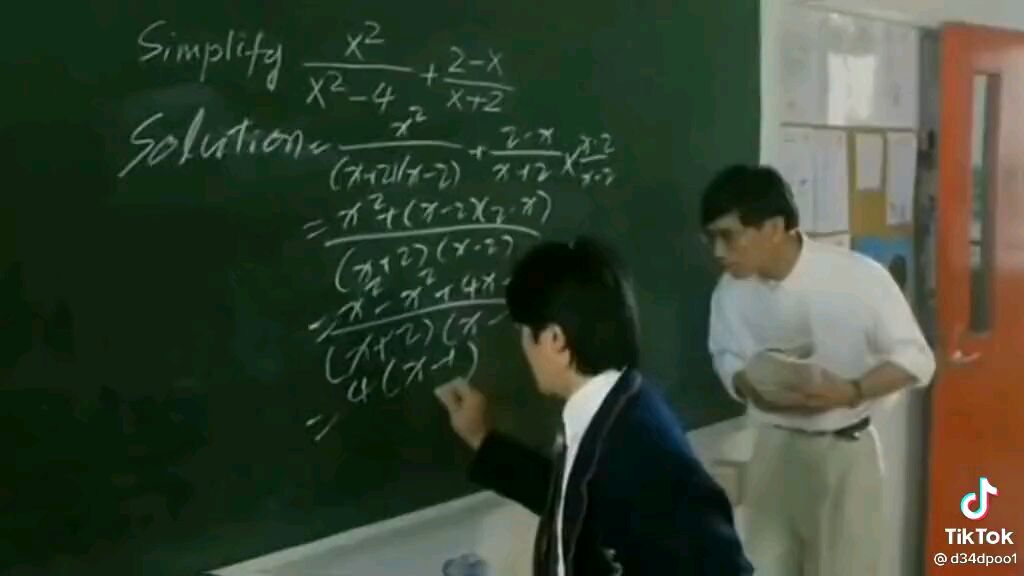 Simplify x²/(x²-4) + (2-x)/(x+2)
Solution = x²/((x+2)(x-2)) + (2-x)/(x+2) × (x-2)/(x-2)
= (x²+(x-2)(2-x))/((x+2)(x-2))
= (x²-x²+4x-)/((x+2)(x-
= 4(x-1)
TikTok
@d34dpoo1